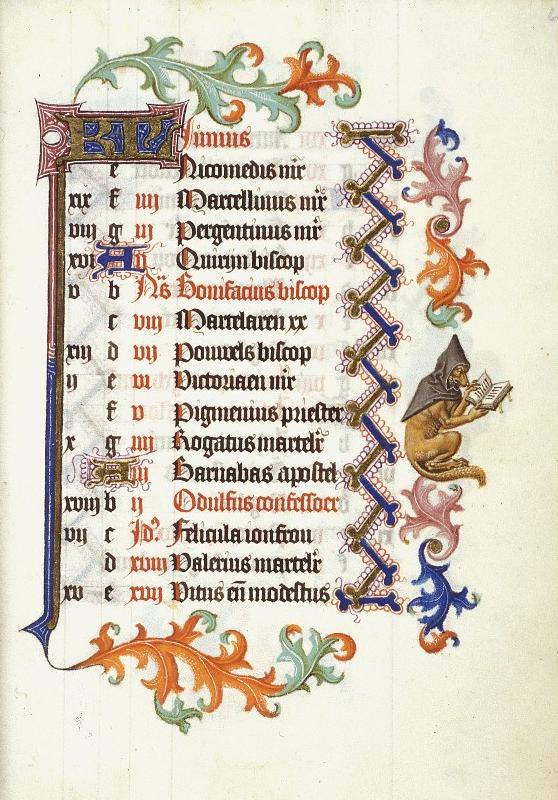 KL Iunius
e Nicomedis mr̄
xix f iiij Marcellinus mr̄
viij g iij Pergentinus mr̄
xvi A ij Quirijn biscop
v b Nͦs Bonifacius biscop
c viij Martelaren xx
xiij d vij Pouwels biscop
ij e vi Victoriaen mr̄
f v Pigmenius priester
x g iiij Rogatus martelr̄
A iij Barnabas apostel
xviij b ij Odulfus confessoer
vij c Id⁹ Felicula ionfrou
d xviij Valerius martelr̄
xv e xvij Vitus eñ modestus